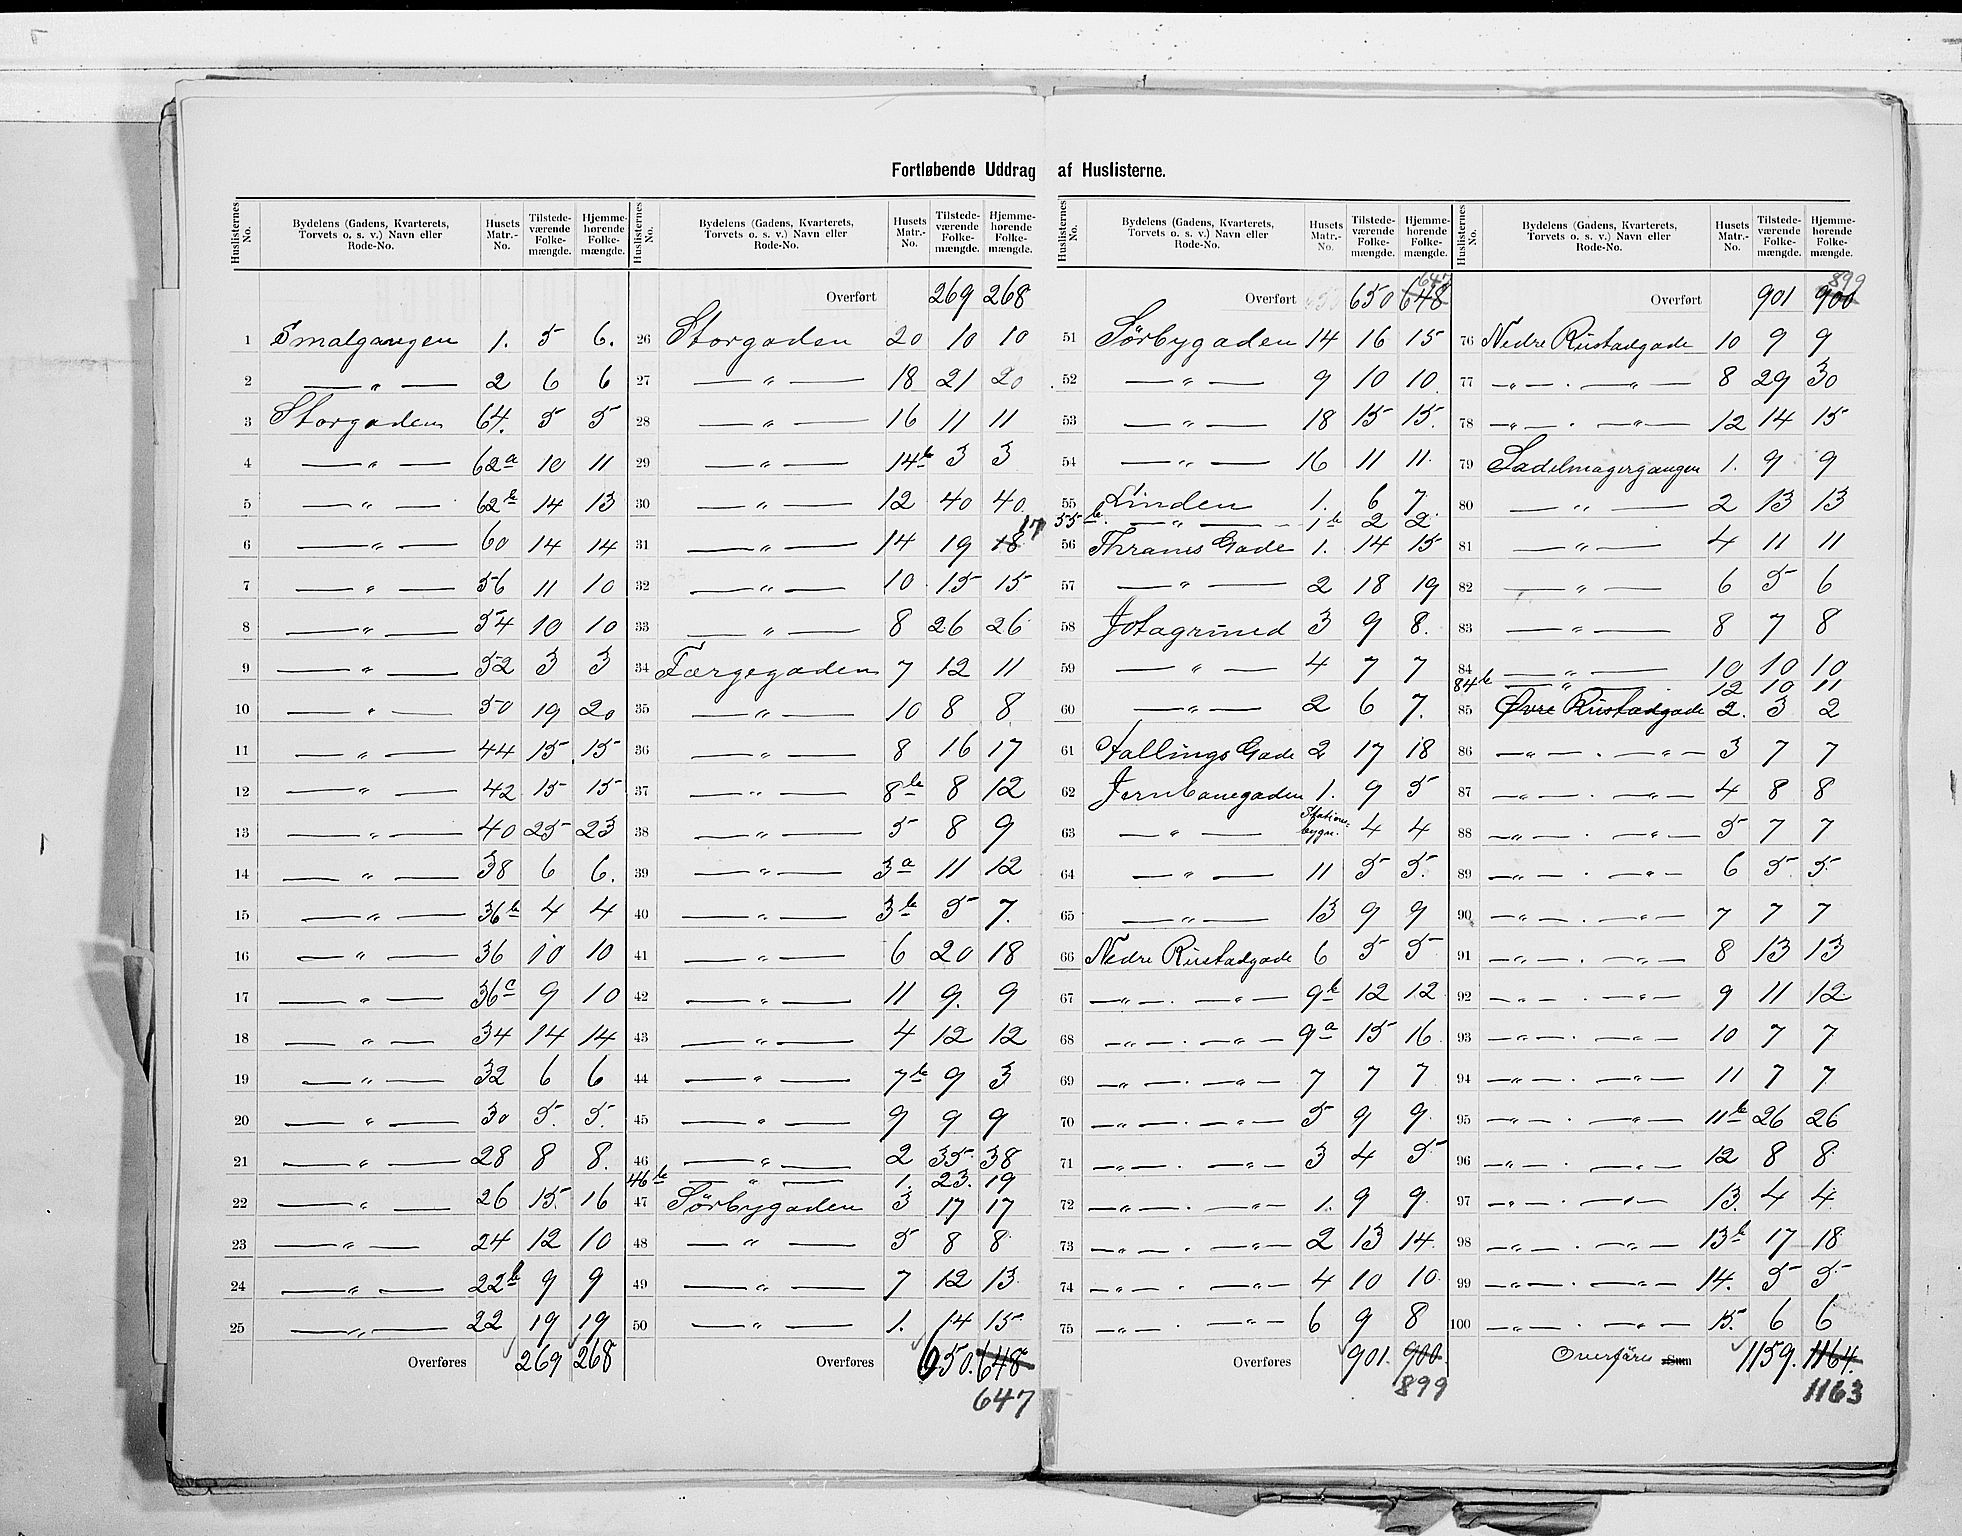 Fortløbende Uddrag af Huslisterne.
Huslisternes No. | Bydelens (Gadens, Kvarterets, Torvets o. s. v.) Navn eller Rode-No. | Husets Matr.-No. | Tilstedeværende Folkemængde. | Hjemmehørende Folkemængde.
1 Smalgangen 1. 5 6.
2 — " — 2 6 6
3 Storgaden 64. 5 5
4 — " — 62a 10 11
5 — " — 62b 14 13
6 — " — 60 14 14
7 — " — 56 11 10
8 — " — 54 10 10
9 — " — 52 3 3
10 — " — 50 19 20
11 — " — 44 15 15
12 — " — 42 15 15
13 — " — 40 25 23
14 — " — 38 6 6.
15 — " — 36b 4 4
16 — " — 36 10 10
17 — " — 36c 9 10
18 — " — 34 14 14
19 — " — 32 6 6
20 — " — 30 5. 5.
21 — " — 28 8 8.
22 — " — 26 15. 16
23 — " — 24 12 10
24 — " — 22b 9 9
25 — " — 22 19 19
Overføres 269 268
Huslisternes No. | Bydelens (Gadens, Kvarterets, Torvets o. s. v.) Navn eller Rode-No. | Husets Matr.-No. | Tilstedeværende Folkemængde. | Hjemmehørende Folkemængde.
Overført 269 268
26 Storgaden 20 10 10
27 — " — 18 21 20
28 — " — 16 11 11
29 — " — 14b 3 3
30 — " — 12 40 40.
31 — " — 14 19 18 17
32 — " — 10 15 15
33 — " — 8 26 26
34 Færgegaden 7 12 11
35 — " — 10 8 8.
36 — " — 8 16 17
37 — " — 8b 8 12
38 — " — 5 8 9
39 — " — 3a 11 12
40 — " — 3b 5 7.
41 — " — 6 20 18
42 — " — 11 9. 9
43 — " — 4 12 12
44 — " — 7b 9 3
45 — " — 9 9 9
46 — " — 2 35. 38
46b — " — 1. 23. 19
47 Sörbygaden 3 17 17
48 — " — 5 8 8.
49 — " — 7 12 13.
50 — " — 1. 14 15
Overføres 650. 648
647
Huslisternes No. | Bydelens (Gadens, Kvarterets, Torvets o. s. v.) Navn eller Rode-No. | Husets Matr.-No. | Tilstedeværende Folkemængde. | Hjemmehørende Folkemængde.
647
Overført 650 650 648
51 Sörbygaden 14 16 15
52 — " — 9 10 10.
53 — " — 18 15 15.
54 — " — 16 11 11.
55 Linden 1. 6 7.
55b. — " — 1b 2 2.
56 Thranes Gade 1. 14 15
57 — " — 2 18 19
58 Jotagrund 3 9 8.
59 — " — 4 7 7
60 — " — 2 6 7.
61 Fallings Gade 2 17 18
62 Jernbanegaden 1. 9 5
63 — " — Stations-bygn. 4 4
64 — " — 11 5 5.
65 — " — 13 9 9
66 Nedre Rustadgade 6 5 5
67 — " — . — " — 9b 12 12
68 — " — . — " — 9a 15 16
69 — " — . — " — 7 7 7
70 — " — . — " — 5 9 9.
71 — " — . — " — 3 4 5
72 — " — . — " — 1. 9 9.
73 — " — . — " — 2 13 14.
74 — " — . — " — 4 10 10.
75 — " — . — " — 6 9 8
Overføres 901. 900.
899
Huslisternes No. | Bydelens (Gadens, Kvarterets, Torvets o. s. v.) Navn eller Rode-No. | Husets Matr.-No. | Tilstedeværende Folkemængde. | Hjemmehørende Folkemængde.
899
Overført 901 900
76 Nedre Rustadgade 10 9 9
77 — " — . — " — 8 29 30
78 — " — . — " — 12 14 15
79 Sadelmagergangen 1. 9 9
80 — " — 2 13 13
81 — " — 4 11 11
82 — " — 6 5 6
83 — " — 8 7 8
84 — " — 10 10 10
84b — " — 12 10 11
85 Øvre Rustadgade 2. 3 2
86 — " — . — " — 3 7 7
87 — " — . — " — 4 8 8
88 — " — . — " — 5 7 7
89 — " — . — " — 6 5. 5
90 — " — . — " — 7 7 7
91 — " — . — " — 8 13 13
92 — " — . — " — 9 11 12
93 — " — . — " — 10 7 7
94 — " — . — " — 11 7 7
95 — " — . — " — 11b 26 26
96 — " — . — " — 12 8 8.
97 — " — . — " — 13. 4 4.
98 — " — . — " — 13b 17 18
99 — " — . — " — 14. 5 5
100 — " — . — " — 15. 6 6
Overføres Sum 1159. 1164.
1163